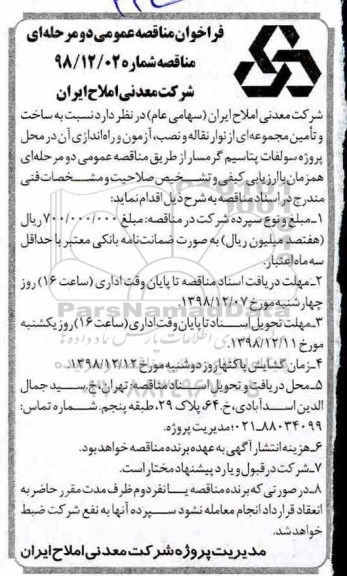 فراخوان مناقصه عمومی دو مرحله‌ای
مناقصه شماره ۹۸/۱۲/۰۲
شرکت معدنی املاح ایران
شرکت معدنی املاح ایران (سهامی عام) در نظر دارد نسبت به ساخت
و تأمین مجموعه‌ای از نوار نقاله و نصب، آزمون و راه‌اندازی آن در محل
پروژه سولفات پتاسیم گرمسار از طریق مناقصه عمومی دو مرحله‌ای
همزمان با ارزیابی کیفی و تشخیص صلاحیت و مشخصات فنی
مندرج در اسناد مناقصه به شرح ذیل اقدام نماید:
۱ـ مبلغ و نوع سپرده شرکت در مناقصه: مبلغ ۷۰۰/۰۰۰/۰۰۰ ریال
(هفتصد میلیون ریال) به صورت ضمانت‌نامه بانکی معتبر با حداقل
سه ماه اعتبار.
۲ـ مهلت دریافت اسناد مناقصه تا پایان وقت اداری (ساعت ۱۶) روز
چهارشنبه مورخ ۱۳۹۸/۱۲/۰۷.
۳ـ مهلت تحویل اسناد تا پایان وقت اداری (ساعت ۱۶) روز یکشنبه
مورخ ۱۳۹۸/۱۲/۱۱.
۴ـ زمان گشایش پاکتها روز دوشنبه مورخ ۱۳۹۸/۱۲/۱۲.
۵ـ محل دریافت و تحویل اسناد مناقصه: تهران، خ. سید جمال
الدین اسدآبادی، خ. ۶۴، پلاک ۲۹، طبقه پنجم. شماره تماس:
۸۸۰۳۴۰۹۹-۰۲۱؛ مدیریت پروژه.
۶ـ هزینه انتشار آگهی به عهده برنده مناقصه خواهد بود.
۷ـ شرکت در قبول و یا رد پیشنهاد مختار است.
۸ـ در صورتی که برنده مناقصه یا نفر دوم ظرف مدت مقرر حاضر به
انعقاد قرارداد انجام معامله نشود سپرده آنها به نفع شرکت ضبط
خواهد شد.
مدیریت پروژه شرکت معدنی املاح ایران
ParsNamadData